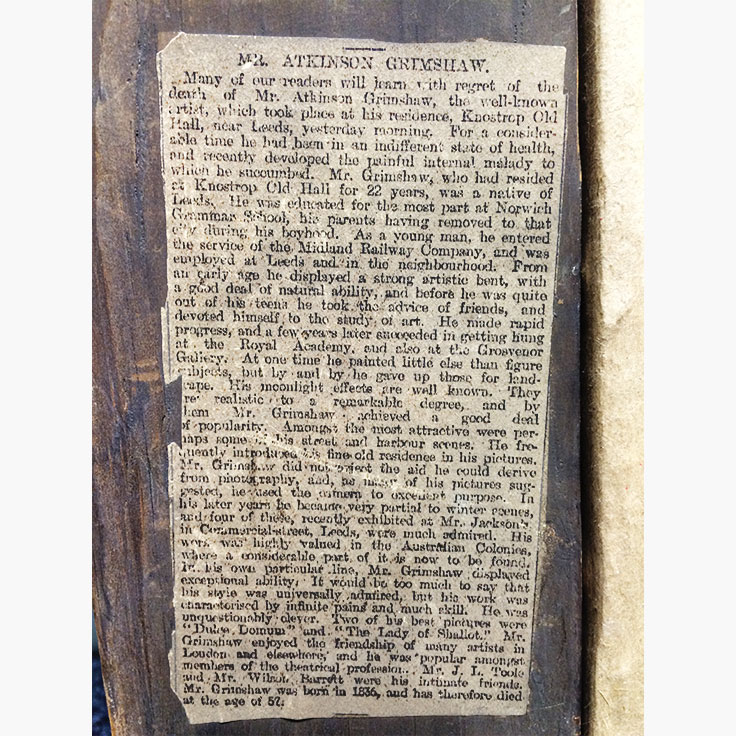 MR. ATKINSON GRIMSHAW.
Many of our readers will learn with regret of the
death of Mr. Atkinson Grimshaw, the well-known
artist, which took place at his residence, Knostrop Old
Hall, near Leeds, yesterday morning. For a consider-
able time he had been in an indifferent state of health,
and recently developed the painful internal malady to
which he succumbed. Mr. Grimshaw, who had resided
at Knostrop Old Hall for 22 years, was a native of
Leeds. He was educated for the most part at Norwich
Grammar School, his parents having removed to that
city during his boyhood. As a young man, he entered
the service of the Midland Railway Company, and was
employed at Leeds and in the neighbourhood. From
an early age he displayed a strong artistic bent, with
a good deal of natural ability, and before he was quite
out of his teens he took the advice of friends, and
devoted himself to the study of art. He made rapid
progress, and a few years later succeeded in getting hung
at the Royal Academy, and also at the Grosvenor
Gallery. At one time he painted little else than figure
subjects, but by and by he gave up those for land-
cape. His moonlight effects are well known. They
re realistic to a remarkable degree, and by
hem Mr. Grimshaw achieved a good deal
of popularity. Amongst the most attractive were per-
haps some of his street and harbour scenes. He fre-
quently introduced his fine old residence in his pictures.
Mr. Grimshaw did not reject the aid he could derive
from photography, and, as many of his pictures sug-
gested, he used the camera to excellent purpose. In
his later years he became very partial to winter scenes,
and four of these, recently exhibited at Mr. Jackson's
in Commercial-street, Leeds, were much admired. His
work was highly valued in the Australian Colonies,
where a considerable part of it is now to be found.
In his own particular line, Mr. Grimshaw displayed
exceptional ability. It would be too much to say that
his style was universally admired, but his work was
characterised by infinite pains and much skill. He was
unquestionably clever. Two of his best pictures were
"Dulce Domum" and "The Lady of Shallot." Mr.
Grimshaw enjoyed the friendship of many artists in
London and elsewhere, and he was popular amongst
members of the theatrical profession. Mr. J. L. Toole
and Mr. Wilson Barrett were his intimate friends.
Mr. Grimshaw was born in 1836, and has therefore died
at the age of 57.